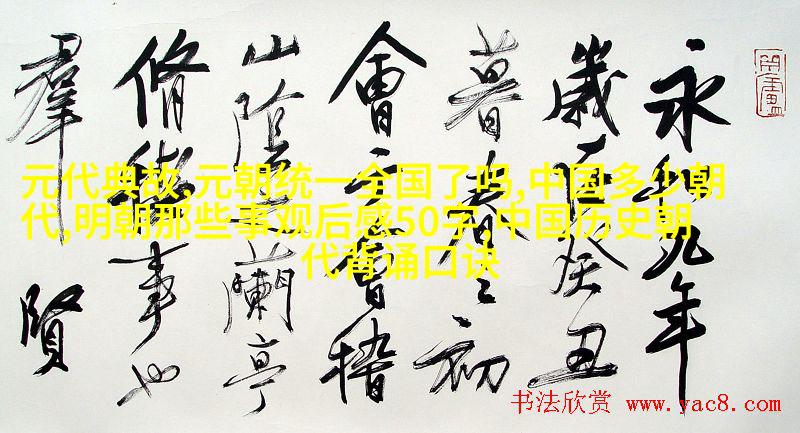 永和九年
歲在癸丑
暮春之初
會于會稽
山陰之蘭亭
脩禊事也
羣賢
元代典故,元朝统一全国了吗,中国多少朝
代,明朝那些事观后感50字,中国历史朝
代背诵口诀
书法欣赏 www.yac8.com